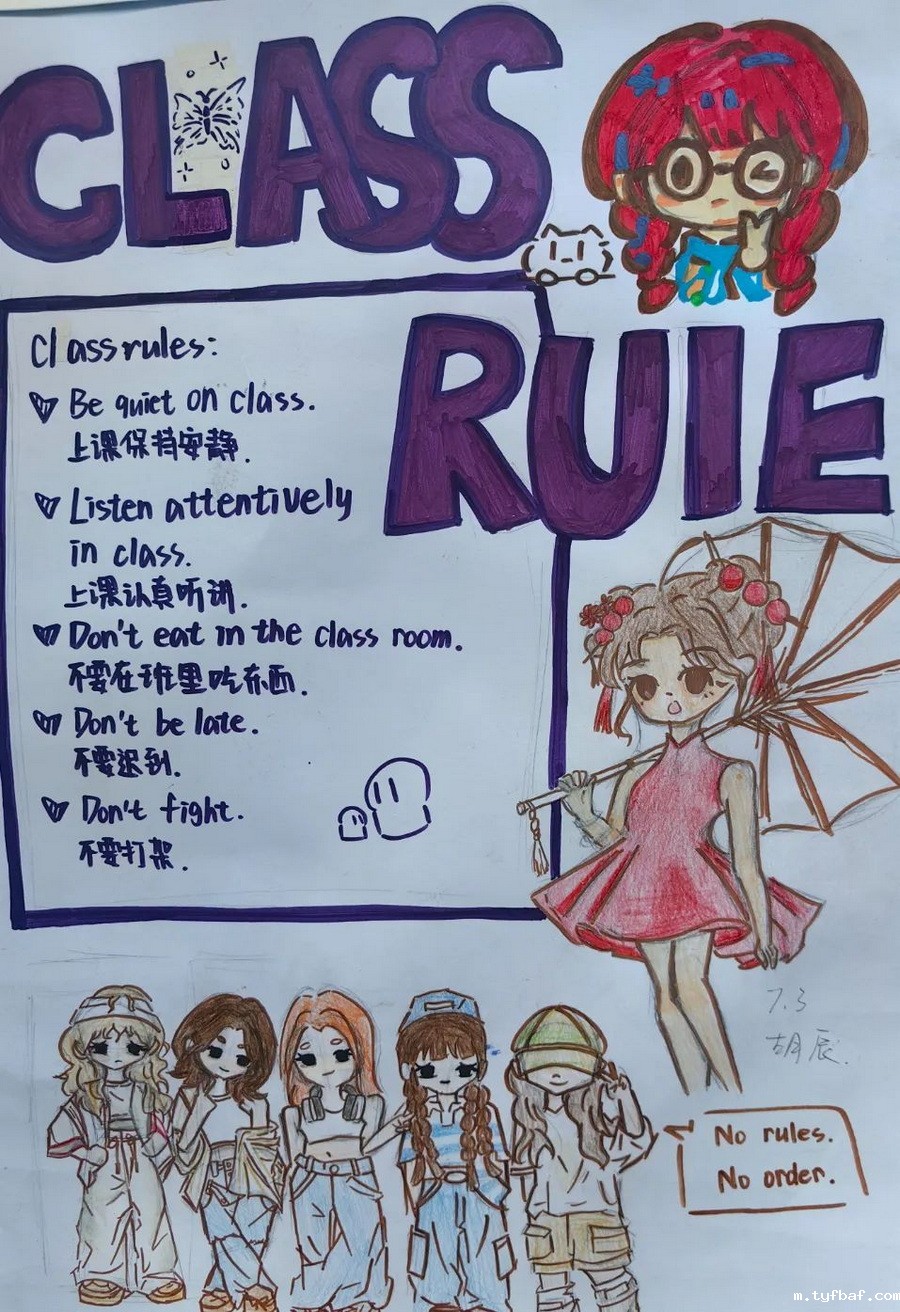 CLASS
RUIE
Class rules:
Be quiet on class.
上课保持安静.
Listen attentively
in class.
上课认真听讲.
Don't eat in the class room.
不要在班里吃东西.
Don't be late.
不要迟到.
Don't fight.
不要打架.
7.3
胡辰.
No rules.
No order.
m.tyfbaf.com